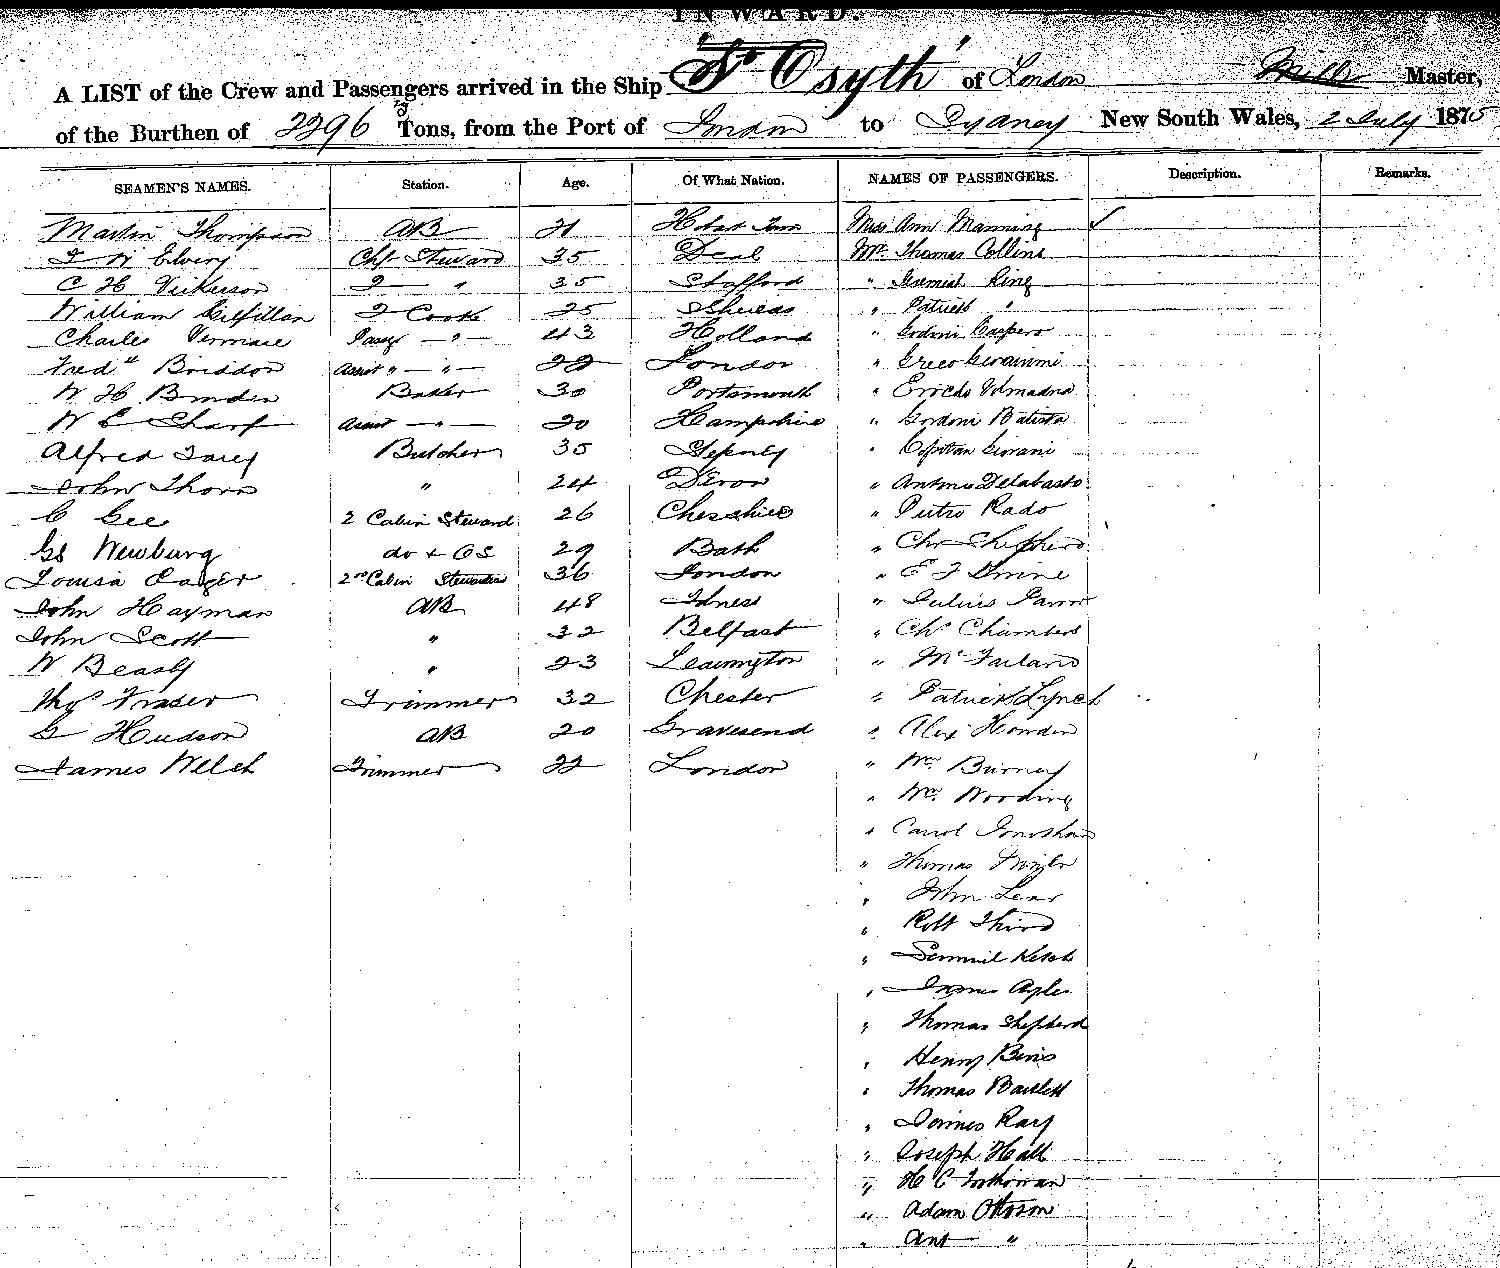 INWARD.
A LIST of the Crew and Passengers arrived in the Ship "St Osyth" of London Mills Master,
of the Burthen of 2296 Tons, from the Port of London to Sydney New South Wales, 2 July 1875
SEAMEN'S NAMES. Station. Age. Of What Nation. NAMES OF PASSENGERS. Description. Remarks.
Martin Thompson AB 21 Hobart Town Miss Ann Manning ✓
Elvery Chf Steward 35 Deal Mr Thomas Collins
C H Vickerson 2 " 35 Stafford " Jeremiah Ring
William Gilfillan 2 Cook 25 Shields " Patrick "
Charles Vermase Passgr — " — 43 Holland "
Fredk Briddon Assist " — " — 22 London " Greco Giovanni
W H Baker 30 Portsmouth "
W E Sharp Assist — " — 20 Hampshire " Gordoni Batista
Alfred Butcher 35 Stepney "
John Thorn " 24 Devon " Antonio Delabasto
C Gee 2 Cabin Steward 26 Cheshire " Pietro Rado
Gs Newburg do & OS 29 Bath " Chr Shepherd
Louisa 2nd Cabin Stewardess 36 London " E J
John Hayman AB 48 " Julius
John Scott " 32 Belfast " Chs Chambers
W Beasly " 23 Leamington " McFarland
Thos Fraser Trimmer 32 Chester " Patrick Lynch
G Hudson AB 20 Gravesend " Alex Howden
James Welch Trimmer 22 London " Wm Burney
" Wm Wooding
" Carrol Jonathan
" Thomas
" John Lear
" Robt Third
" Samuel Ketch
" James
" Thomas Shepherd
" Henry Binis
" Thomas Bartlett
" James Ray
" Joseph Hall
" H C
" Adam Ottoson
" Ant "